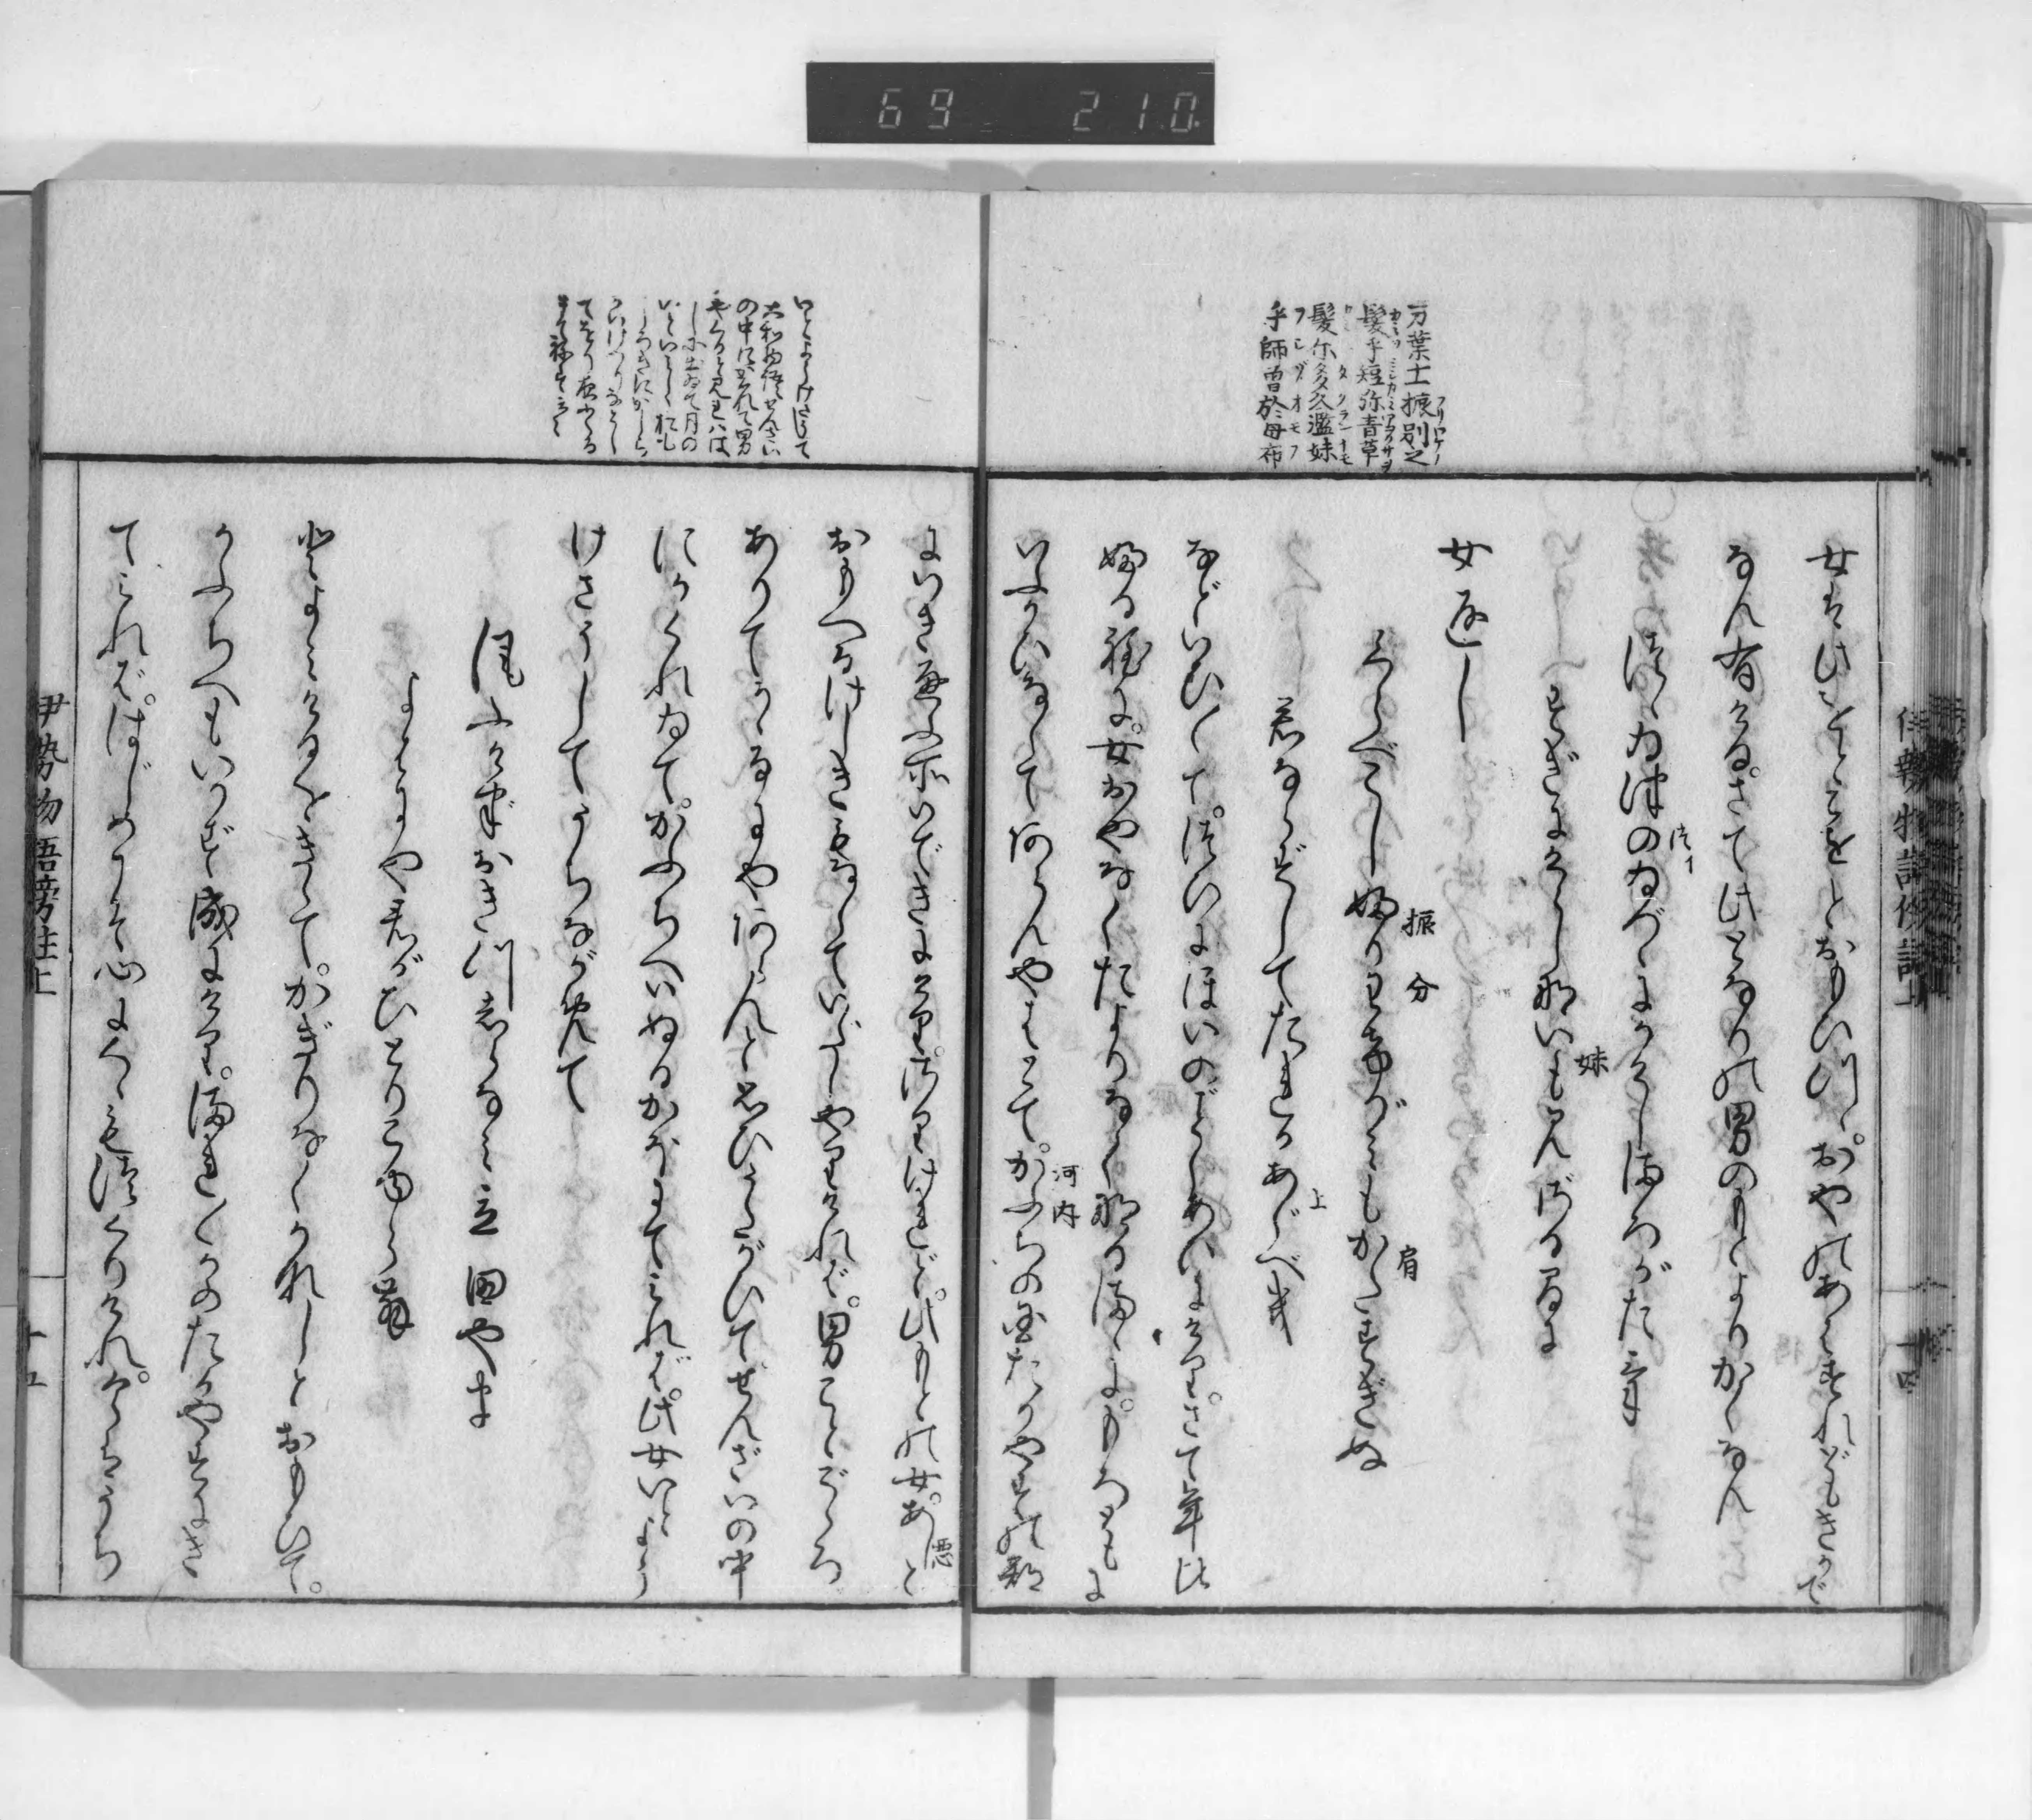 69 210
万葉十振別之
フリワケノ
髪乎短弥青草
カミヲミジカミアヲクサヲ
髪尓多久濫妹
カミニタクランイモ
乎師曽於母布
ヲシゾオモフ
女はこのをとこをとおもひつゝ。おやのあはすれどもきかで
なん有ける。さて此となりの男のもとよりかくなん
つゝゐ津のゐづゝにかけしまろがたけ
つイ
すぎにけらしないもみざるまに
妹
女返し
くらべこしふりわけがみもかたすぎぬ
振分
肩
君ならずしてたれかあぐべき
上
などいひ〳〵て。つひにほいのごとくあひにけり。さて年比
ふる程に。女おやなくたよりなくなるまゝに。もろともに
いふかひなくてあらんやはとて。かふちの国たかやすの郡
河内
にいきかよふ所いできにけり。さりけれど。此もとの女。あしと
悪
おもへるけしきもなくていだしやりければ。男ことごゝろ
ありてかゝるにやあらんと思ひうたがひて。せんざいの中
にかくれゐて。かふちへいぬるかほにてみれば。此女いとよう
けさうしてうちながめて
風ふけばおきつしらなみ立田やま
よはにや君がひとりこゆらん
とよみけるをきゝて。かぎりなくかなしとおもひて。
かふちへもいかず成にけり。まれ〳〵かのたかやすにき
てみれば。はじめこそ心にくゝもつくりけれ。今はうち
いとよくけさうして
大和物語せんざい
の中にかくれて男
やくると見れははし
に出ゐて月の
伊勢物語傍註上
十四
伊勢物語傍註上
十五